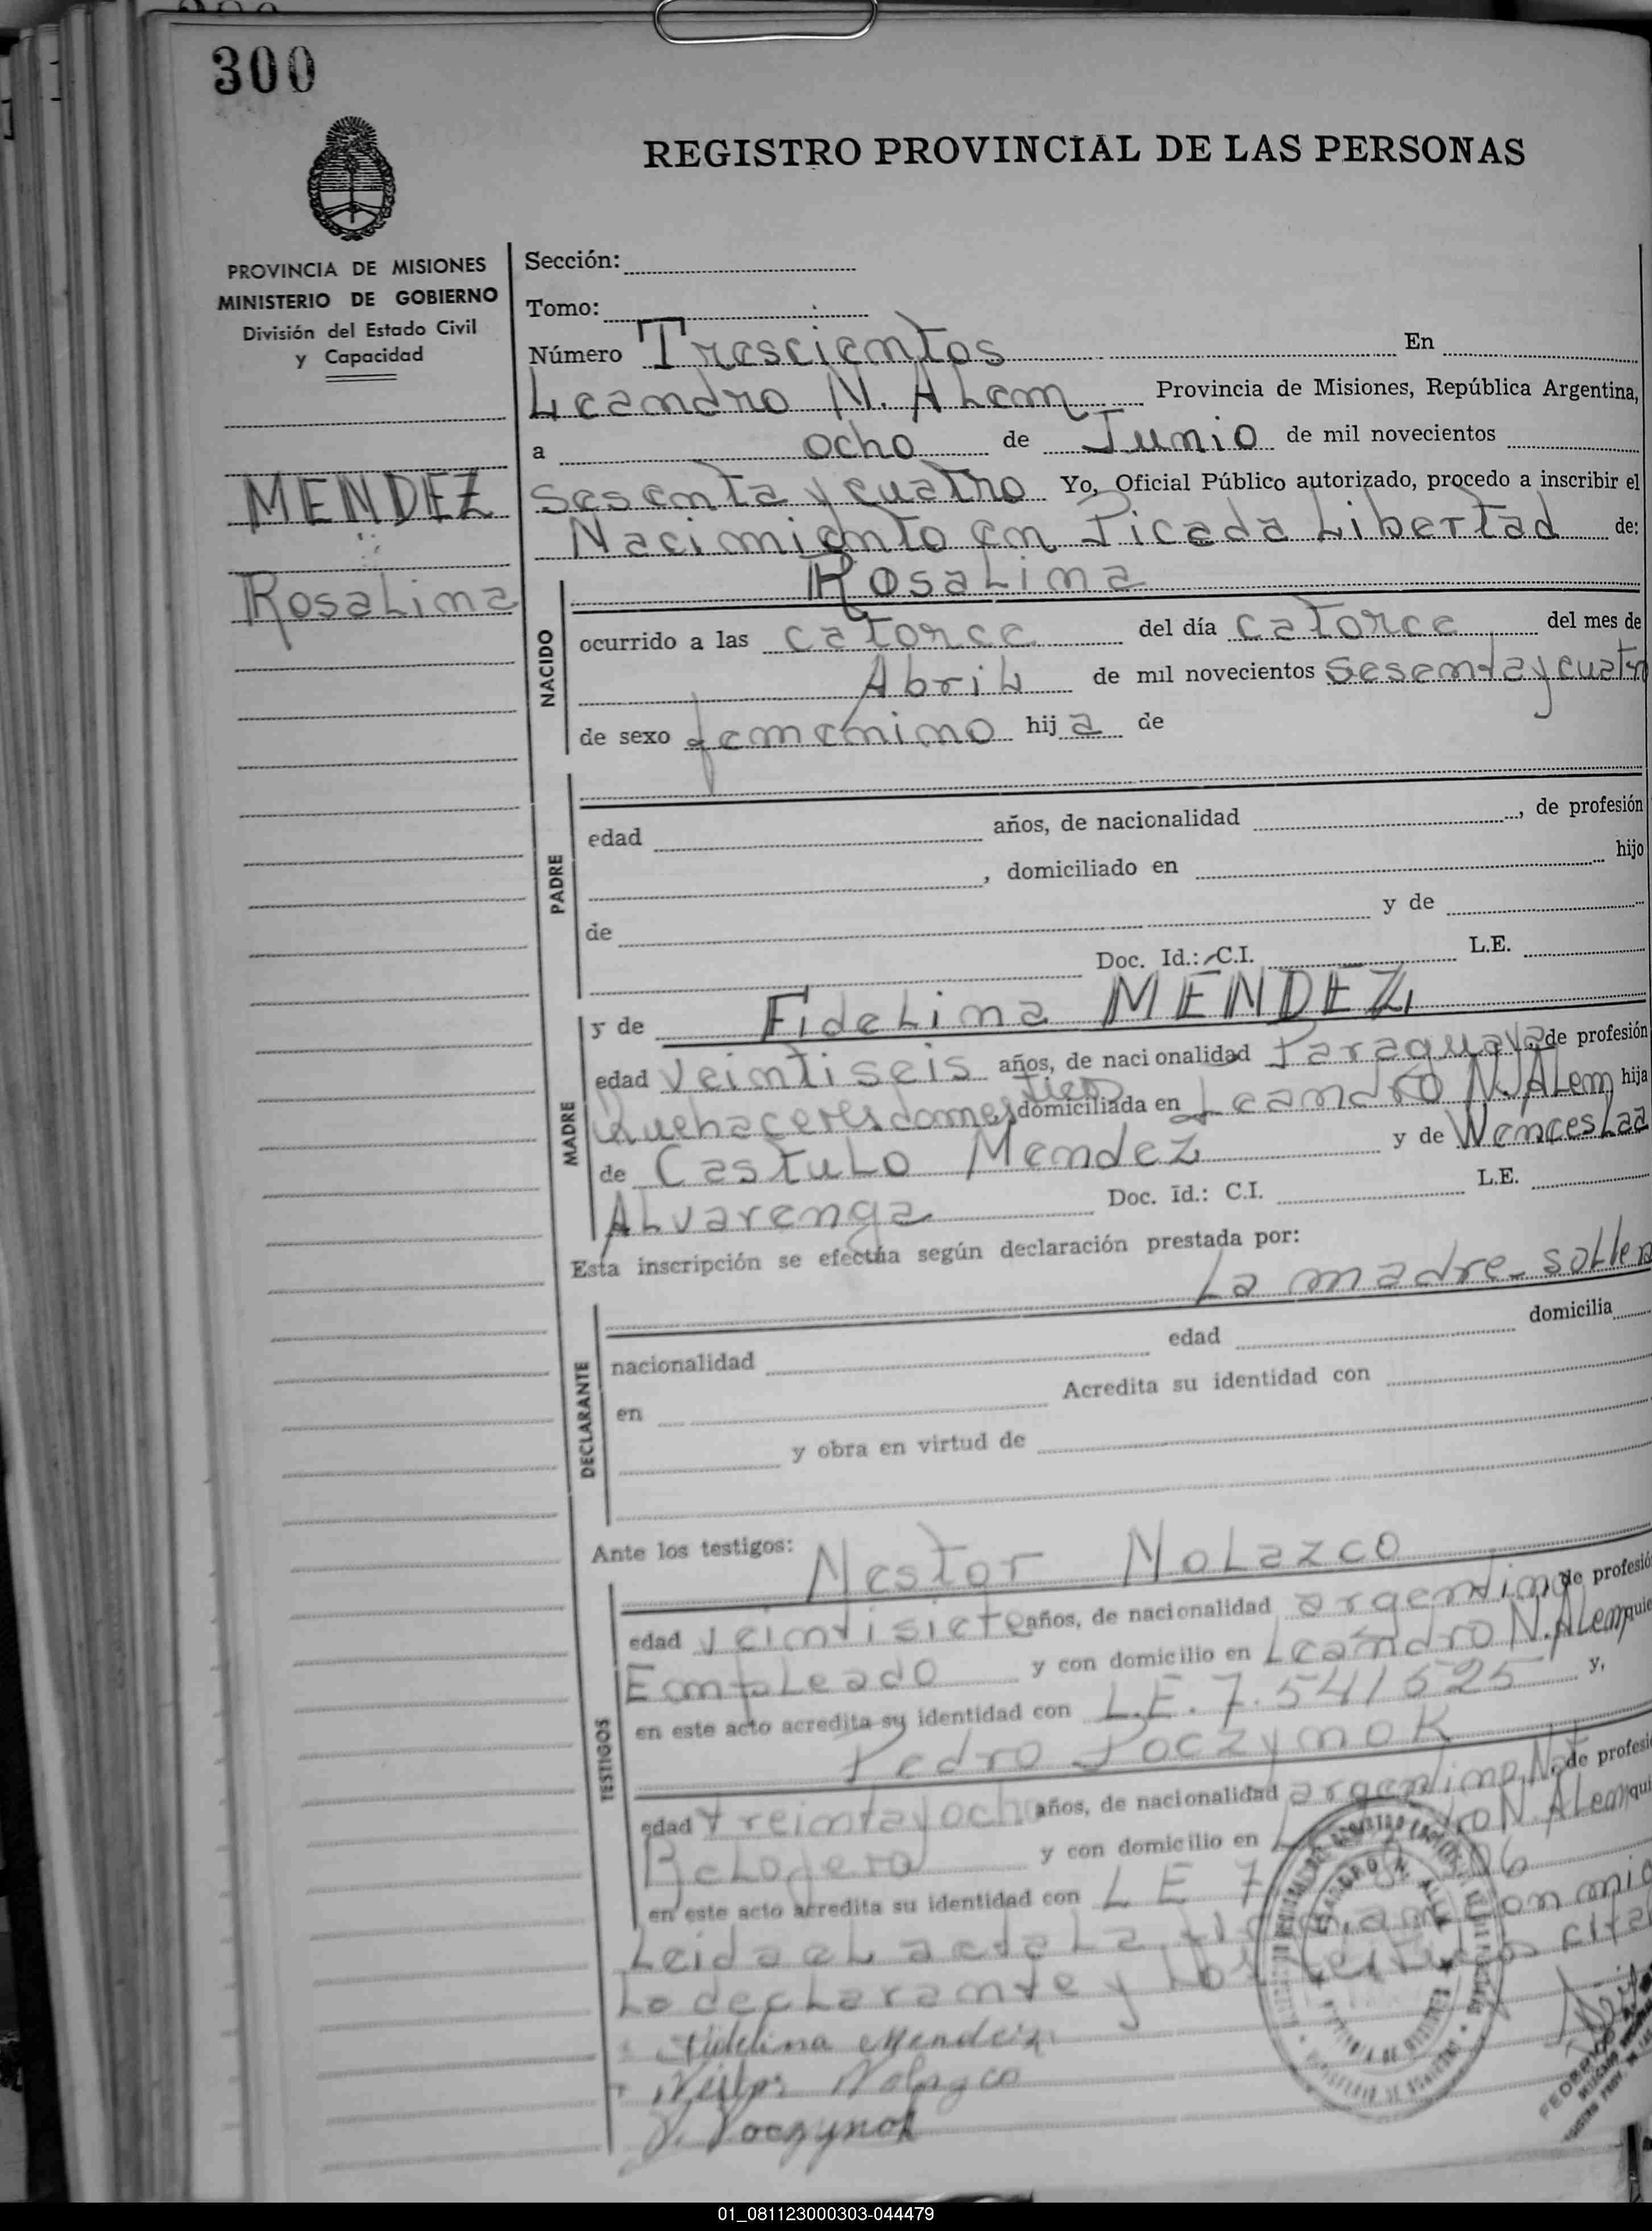 300
REGISTRO PROVINCIAL DE LAS PERSONAS
PROVINCIA DE MISIONES
MINISTERIO DE GOBIERNO
División del Estado Civil
y Capacidad
MENDEZ
RosaLina
Sección:
Tomo:
Número Trescientos En
Leandro N. ALem Provincia de Misiones, República Argentina,
a ocho de Junio de mil novecientos
sesenta y cuatro Yo, Oficial Público autorizado, procedo a inscribir el
Nacimiento en Picada Libertad de:
NACIDO
RosaLina
ocurrido a las catorce del día catorce del mes de
AbriL de mil novecientos sesenta y cuatro
de sexo femenino hija de
PADRE
edad años, de nacionalidad , de profesión
, domiciliado en hijo
de y de
Doc. Id.: C.I. L.E.
MADRE
y de FideLina MENDEZ
edad Veintiseis años, de nacionalidad Paraguaya de profesión
Quehaceres domesticos domiciliada en Leandro N. ALem hija
de CastuLo Mendez y de WencesLaa
ALvarenga Doc. Id.: C.I. L.E.
Esta inscripción se efectúa según declaración prestada por:
La madre - soLter
DECLARANTE
nacionalidad edad domicilia
en Acredita su identidad con
y obra en virtud de
Ante los testigos:
TESTIGOS
Nestor NoLazco
edad veintisiete años, de nacionalidad argentino de profesió
EmpLeado y con domicilio en Leandro N. ALem quie
en este acto acredita su identidad con L.E. 7.541525 y,
Pedro PoczynoK
edad treinta y ocho años, de nacionalidad argentino, Nat de profesi
ReLojero y con domicilio en N. ALem qui
en este acto acredita su identidad con LE 7
Leida eL acta La conmig
La decLarante y Los testigos cita
Fidelina Mendez
Nestor Nolazco
P. Poczynok
01_081123000303-044479